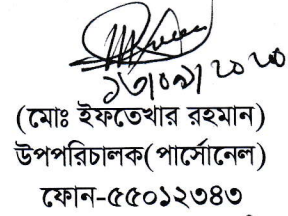 ১৬/০৯/২০২০
(মোঃ ইফতেখার রহমান)
উপপরিচালক(পার্সোনেল)
ফোন-৫৫০১২৩৪৩